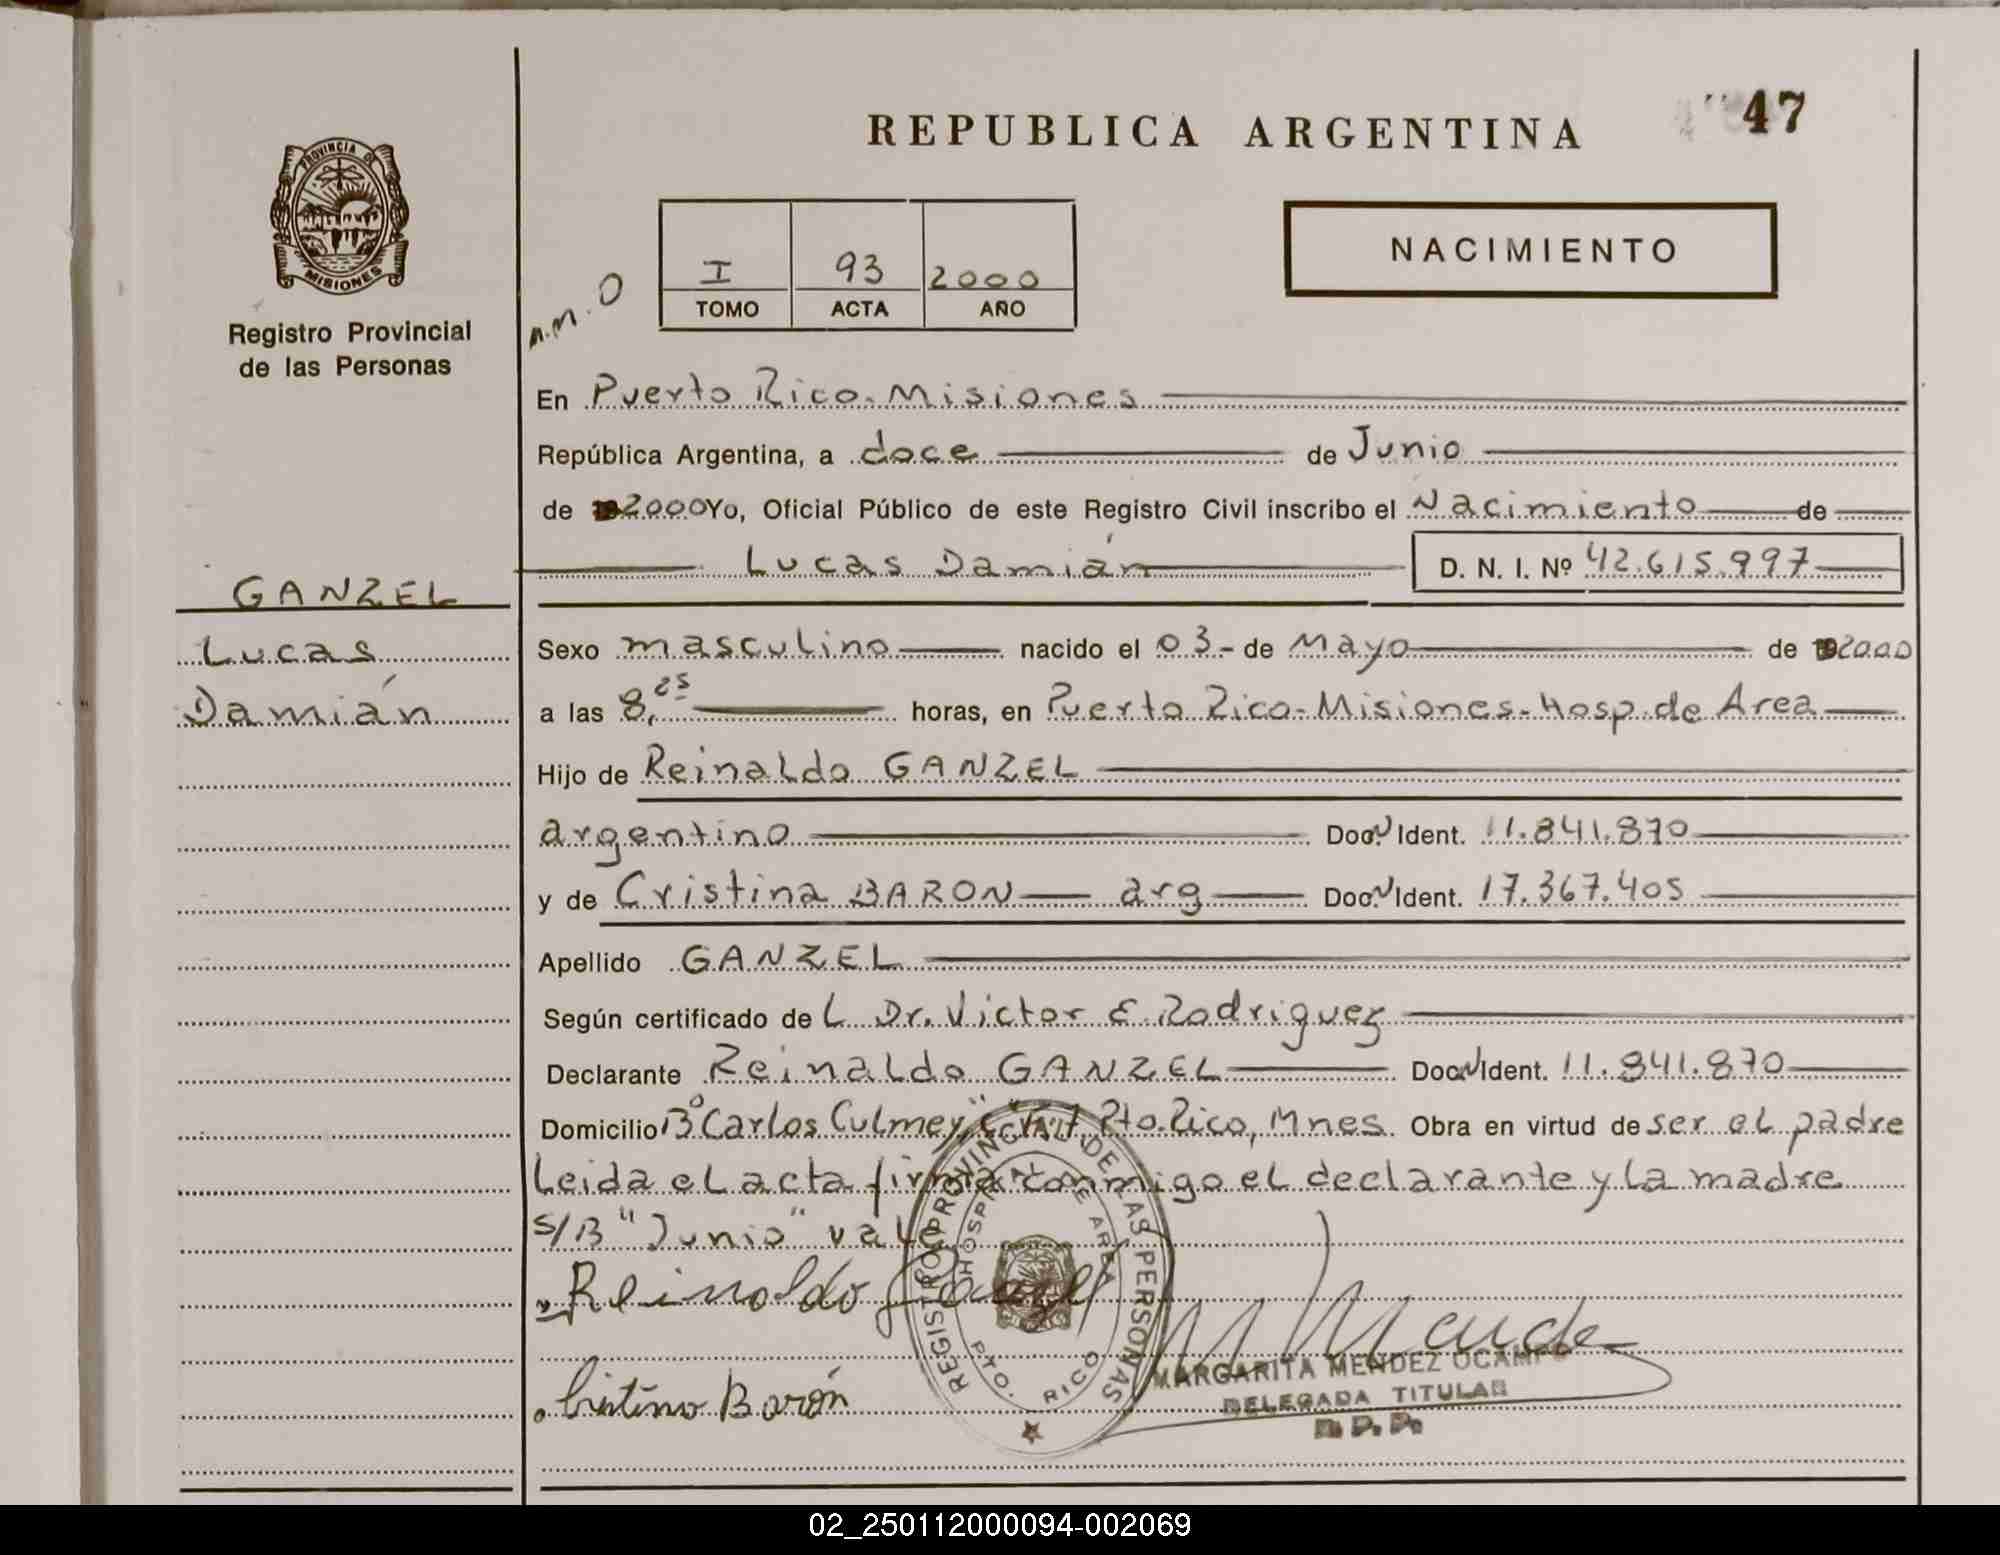 REPUBLICA ARGENTINA
47
PROVINCIA DE
MISIONES
Registro Provincial
de las Personas
NACIMIENTO
I 93 2000
TOMO ACTA AÑO
En Puerto Rico. Misiones
República Argentina, a doce de Junio
de 2000 Yo, Oficial Público de este Registro Civil inscribo el Nacimiento de
Lucas Damián D. N. I. Nº 42.615.997
GANZEL
Lucas
Damián
Sexo masculino nacido el 03 - de Mayo de 2000
a las 8,25 horas, en Puerto Rico - Misiones - Hosp. de Area
Hijo de Reinaldo GANZEL
argentino Doc. N Ident. 11.841.870
y de Cristina BARON arg Doc. N Ident. 17.367.405
Apellido GANZEL
Según certificado de L Dr. Victor E. Rodriguez
Declarante Reinaldo GANZEL Doc. N Ident. 11.841.870
Domicilio Bº Carlos Culmey, Pto. Rico, Mnes. Obra en virtud de ser el padre
Leida el acta firma conmigo el declarante y la madre
S/B "Junio" vale
Reinaldo Ganzel
Cristina Barón
REGISTRO PROVINCIAL DE LAS PERSONAS
HOSPITAL DE AREA
PTO. RICO
MARGARITA MENDEZ OCAMPO
DELEGADA TITULAR
02_250112000094-002069